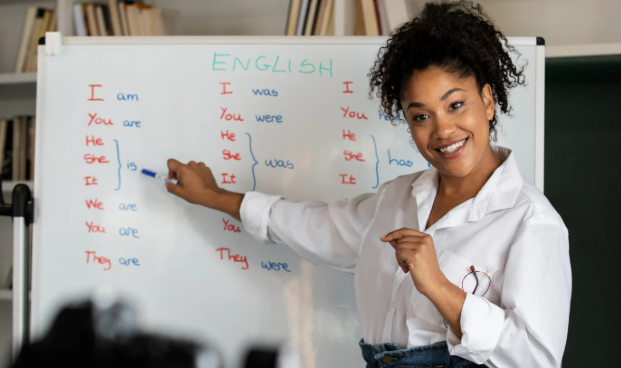 ENGLISH
I am
You are
He
She
is
It
We are
You are
They are
I was
You were
He
She
was
It
You
They were
I
You
He
She
has
It